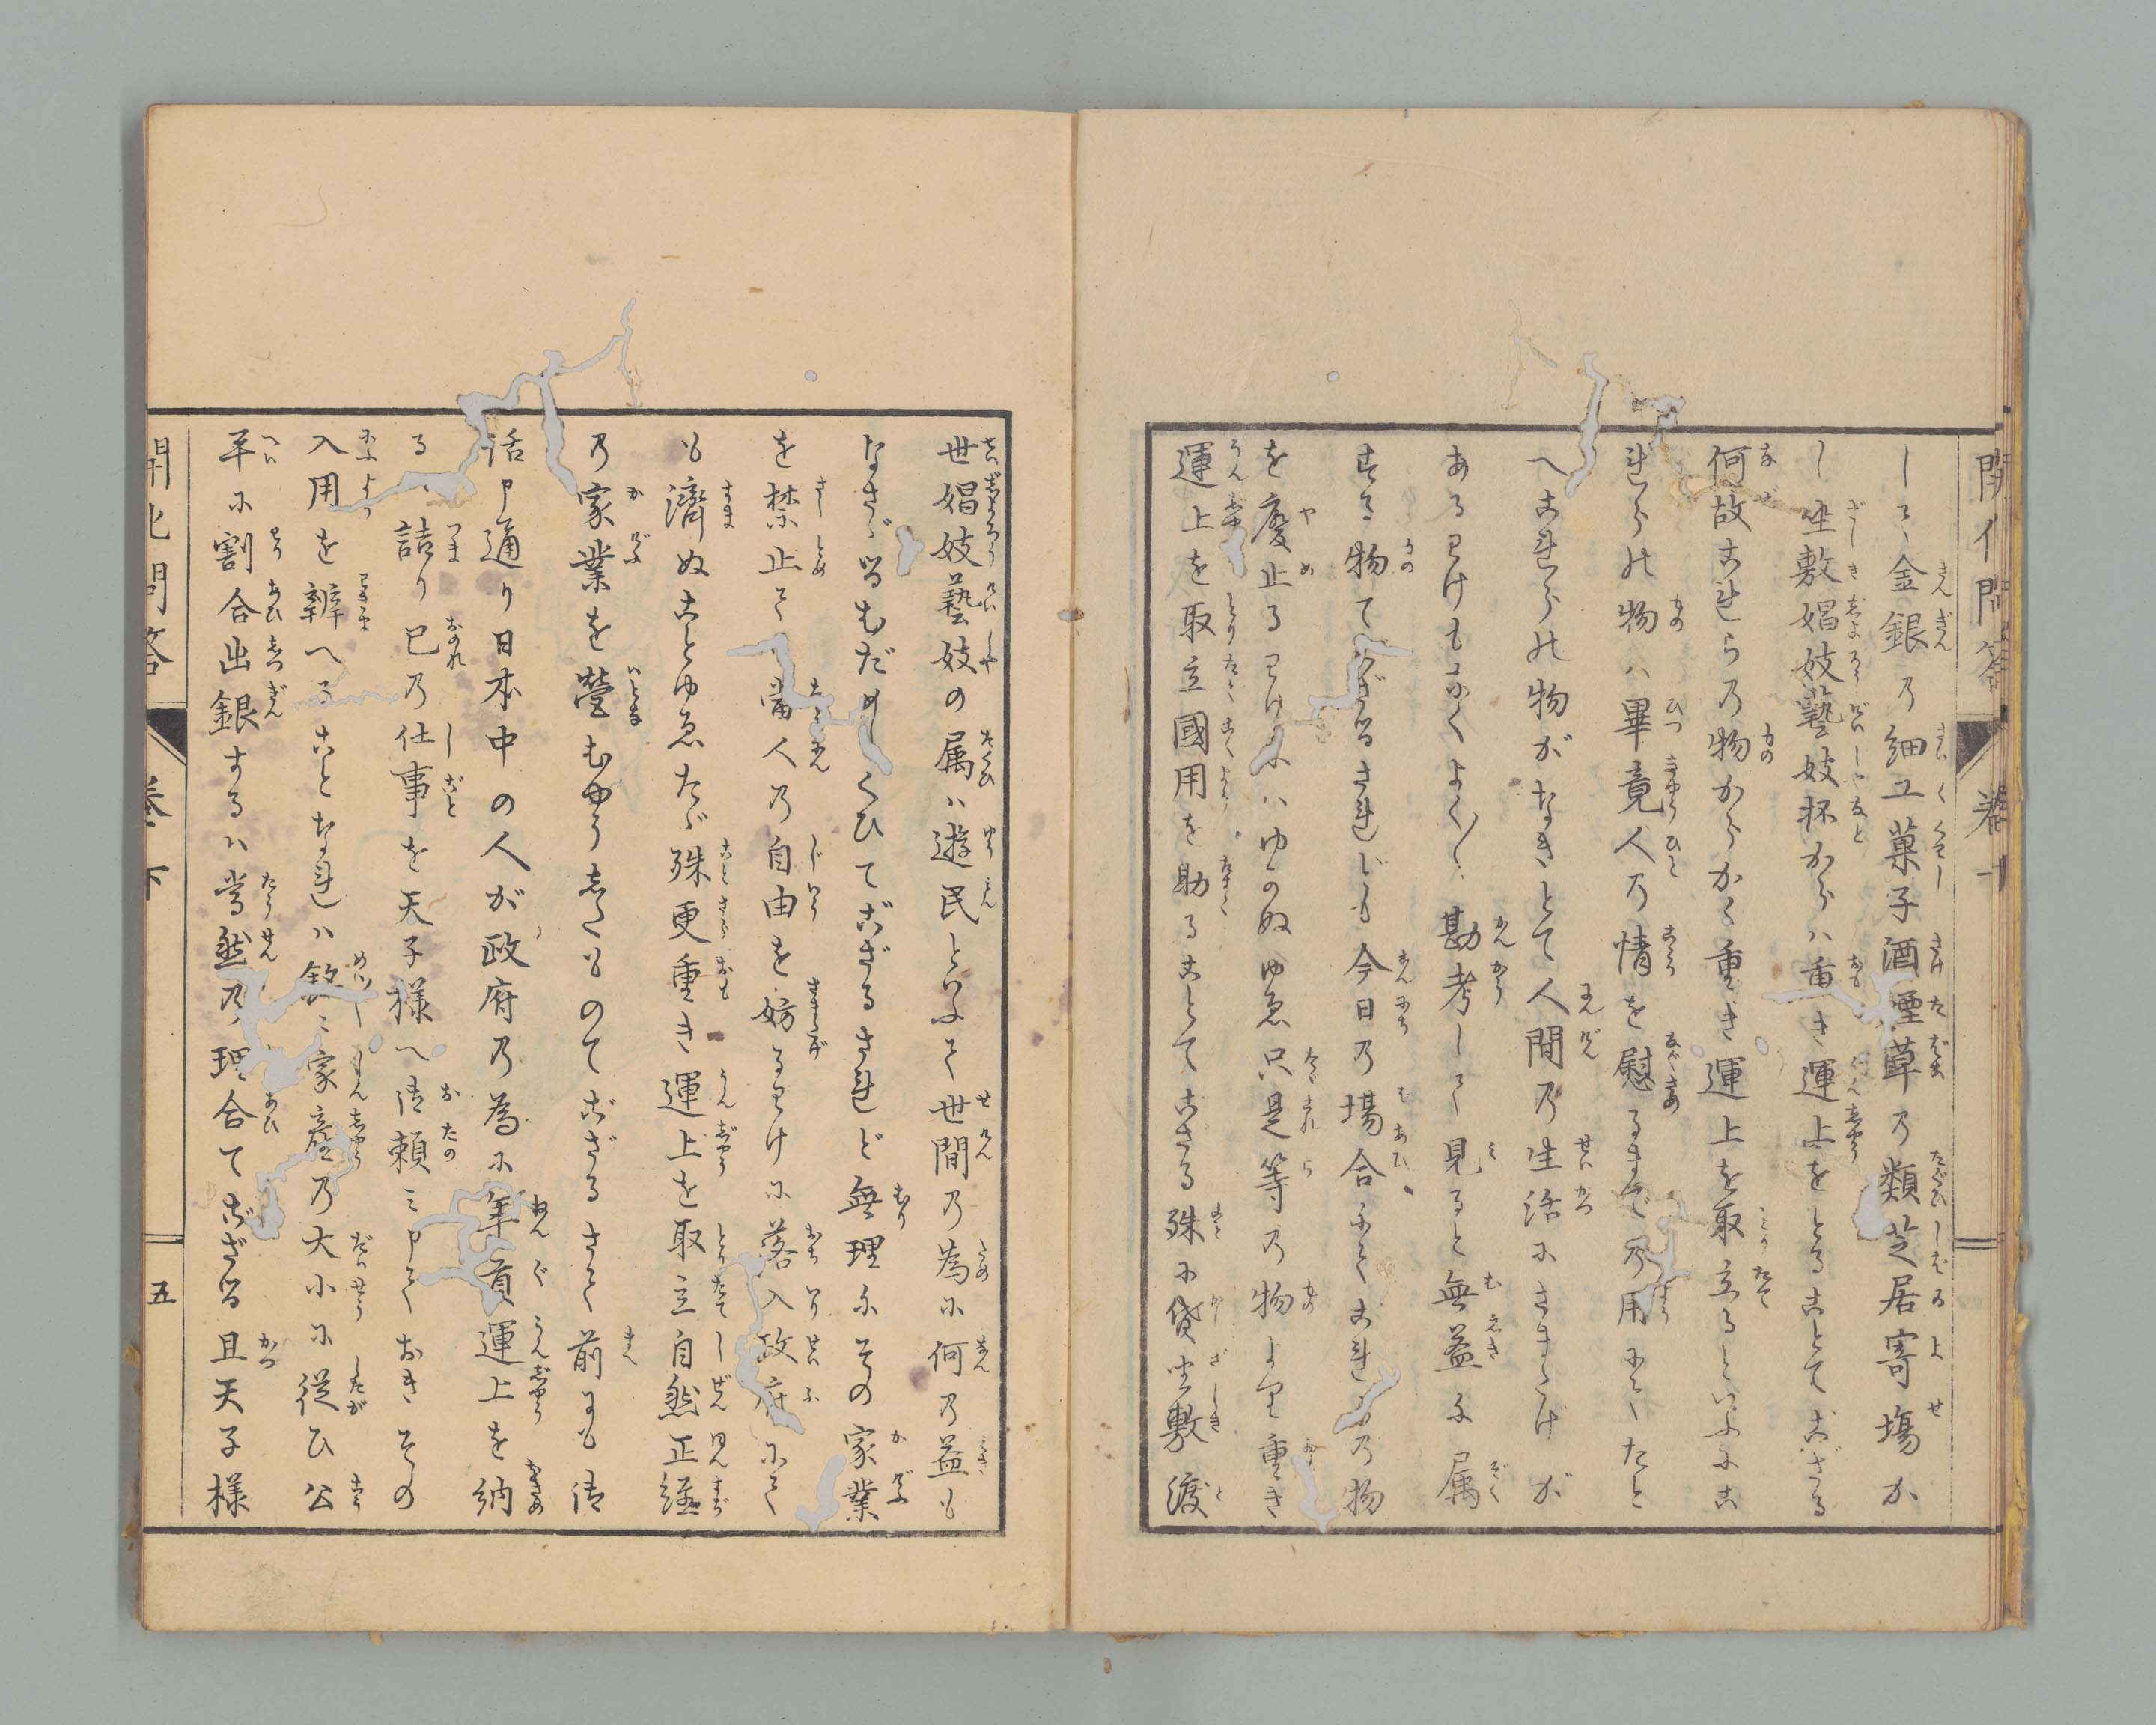 開化問答 巻下
して金銀乃細工菓子酒煙草乃類芝居寄塲か
し坐敷娼妓藝妓抔からハ重き運上をとることてござる
何故これら乃物からかく重き運上を取立るといふにこ
れらの物ハ畢竟人乃情を慰るまで乃用にてたと
へこれらの物がなきとて人間乃生活にさまたげが
あるわけもなくよく〳〵勘考して見ると無益に属
する物てござるされども今日乃塲合にてこれ乃物
を廢止るわけにハゆかぬゆゑ只是等乃物より重き
運上を取立國用を助ることてござる殊に貸坐敷渡
世娼妓藝妓の属ハ遊民といふて世間乃為に何乃益も
なさゞるむだめしくひてござるされど無理にその家業
を禁止て當人乃自由を妨るわけに落入政府にて
も濟ぬことゆゑたゞ殊更重き運上を取立自然正経
乃家業を營むやうしたものてござるさて前にも御
話申通り日本中の人が政府乃為に年貢運上を納
る詰り已乃仕事を天子様へ御頼ミ申ておきその
入用を辨へることなれハ銘ミ家産乃大小に從ひ公
平に割合出銀するハ當然乃理合てござる且天子様
開化問答 巻下 五